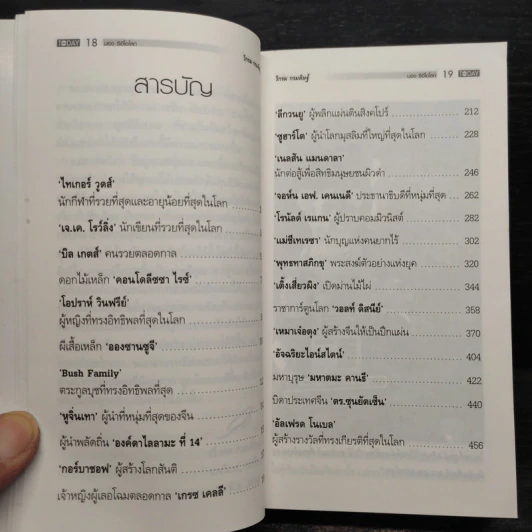 TODAY 18 มอง ซีอีโอโลก
วิกรม กรมดิษฐ์
สารบัญ
'ไทเกอร์ วูดส์'
นักกีฬาที่รวยที่สุดและอายุน้อยที่สุดในโลก
'เจ.เค. โรว์ลิ่ง' นักเขียนที่รวยที่สุดในโลก
'บิล เกตส์' คนรวยตลอดกาล
ดอกไม้เหล็ก 'คอนโดลีซซา ไรซ์'
'โอปราห์ วินฟรีย์'
ผู้หญิงที่ทรงอิทธิพลที่สุดในโลก
ผีเสื้อเหล็ก 'อองซานซูจี'
'Bush Family'
ตระกูลบุชที่ทรงอิทธิพลที่สุด
'หูจิ่นเทา' ผู้นำที่หนุ่มที่สุดของจีน
ผู้นำพลัดถิ่น 'องค์ดาไลลามะ ที่ 14'
'กอร์บาชอฟ' ผู้สร้างโลกสันติ
เจ้าหญิงผู้เลอโฉมตลอดกาล 'เกรซ เคลลี่'
วิกรม กรมดิษฐ์ มอง ซีอีโอโลก 19 TODAY
'ลีกวนยู' ผู้พลิกแผ่นดินสิงคโปร์ 212
'ซูฮาร์โต' ผู้นำโลกมุสลิมที่ใหญ่ที่สุดในโลก 228
'เนลสัน แมนดาลา'
นักต่อสู้เพื่อสิทธิมนุษยชนผิวดำ 246
'จอห์น เอฟ. เคนเนดี' ประธานาธิบดีที่หนุ่มที่สุด 262
'โรนัลด์ เรแกน' ผู้ปราบคอมมิวนิสต์ 282
'แม่ชีเทเรซา' นักบุญแห่งคนยากไร้ 302
'พุทธทาสภิกขุ' พระสงฆ์ตัวอย่างแห่งยุค 320
'เติ้งเสี่ยวผิง' เปิดม่านไม้ไผ่ 344
ราชาการ์ตูนโลก 'วอลท์ ดิสนีย์' 358
'เหมาเจ๋อตุง' ผู้สร้างจีนให้เป็นปึกแผ่น 370
'อัจฉริยะไอน์สไตน์' 404
มหาบุรุษ 'มหาตมะ คานธี' 422
บิดาประเทศจีน 'ดร.ซุนยัดเซ็น' 440
'อัลเฟรด โนเบล'
ผู้สร้างรางวัลที่ทรงเกียรติที่สุดในโลก 456